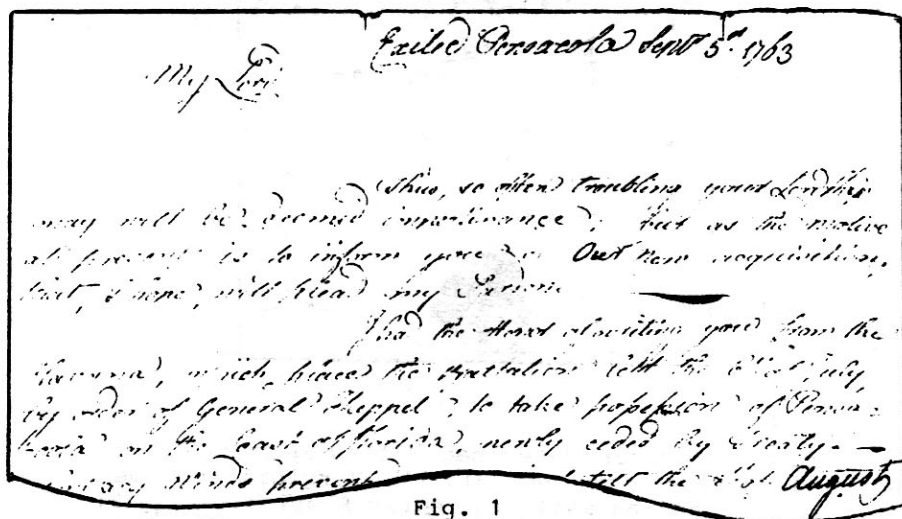 Exiled Pensacola Septr 5th 1763
My Lord
Thus, so often troubling your Lordship
may well be deemed impertinance, but as the motive
at present is to inform you of Our new acquisition,
that, I hope, will plead my Pardon
I had the Honor of writing you from the
Havana, which place the Battalion left the of July
by order of General Keppel, to take possession of Pensa-
cola on the Coast of Florida, newly ceded by Treaty.—
Winds till the of August
Fig. 1